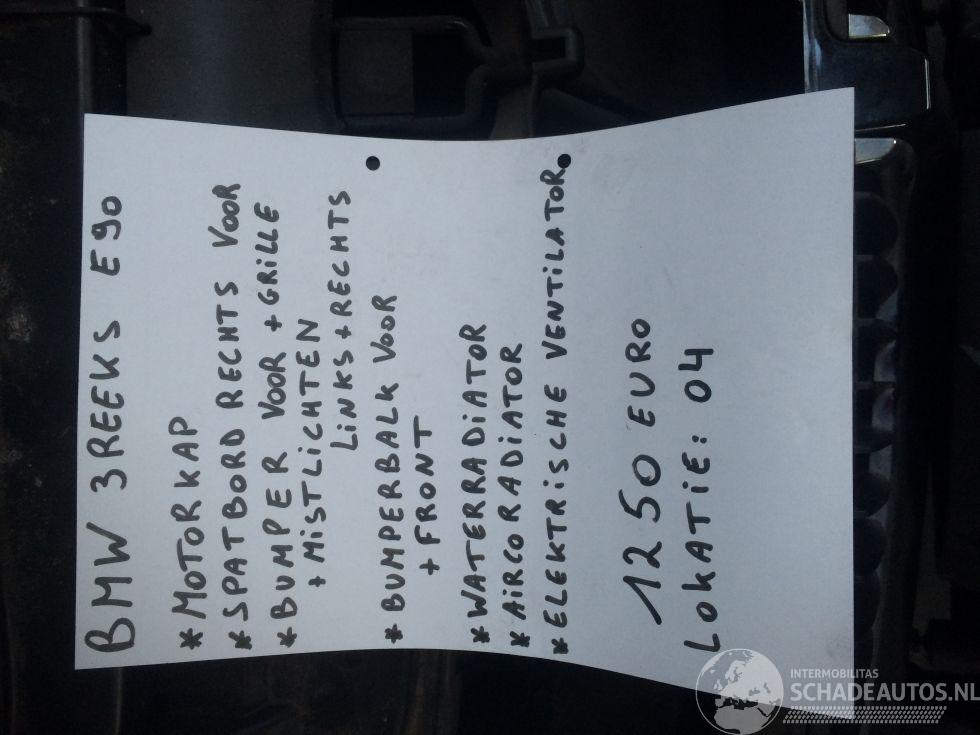 BMW 3REEKS E90
* MOTORKAP
* SPATBORD RECHTS VOOR
* BUMPER VOOR + GRILLE
+ MISTLICHTEN
LINKS + RECHTS
* BUMPERBALK VOOR
+ FRONT
* WATERRADIATOR
* AIRCORADIATOR
* ELEKTRISCHE VENTILATOR
1250 EURO
LOKATIE: 04
INTERMOBILITAS
SCHADEAUTOS.NL